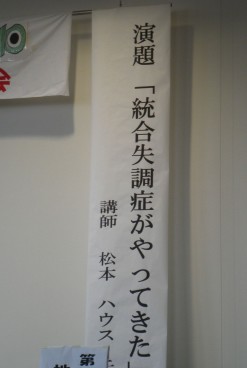 演題 「統合失調症がやってきた」
講師 松本 ハウス
会
第